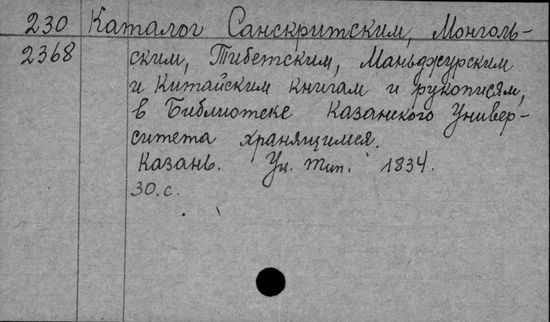 230 Каталог Санскритским, Монголь-
2368 ским, Тибетским, Маньджурским
и Китайским книгам и рукописям,
в Библиотеке Казанского Универ-
ситета хранящимся.
Казань. Ун. тип. 1834.
30.с.